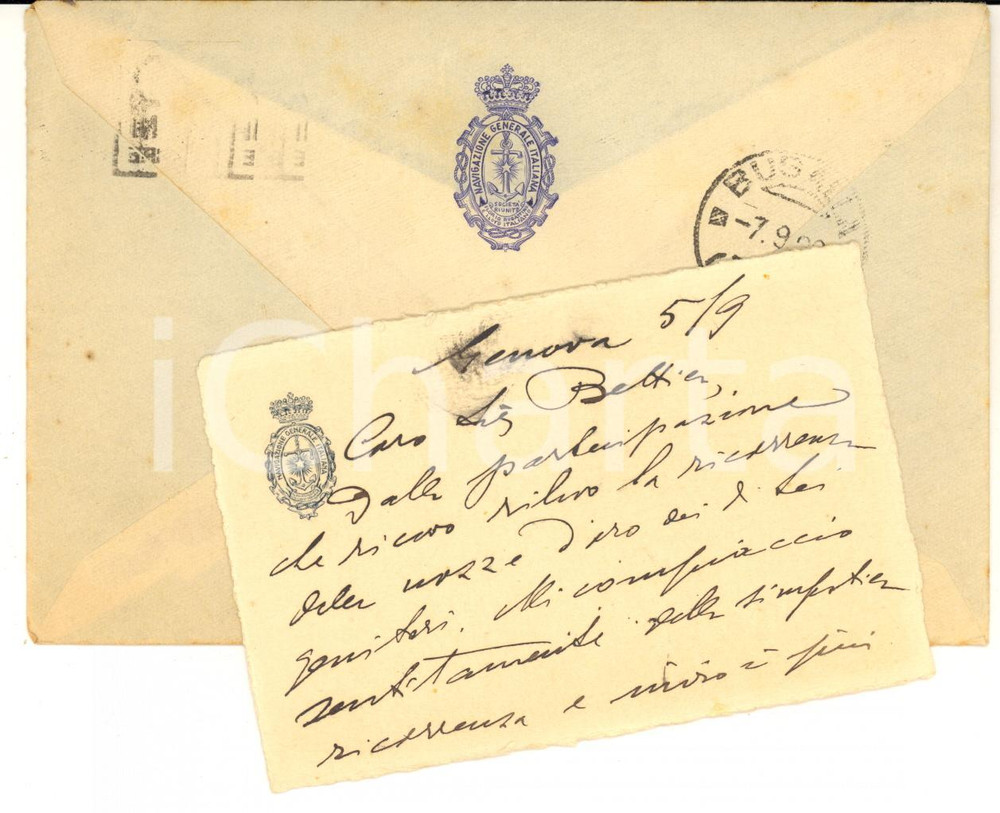 NAVIGAZIONE GENERALE ITALIANA
SOCIETÀ
RIUNITE
BUSALLA
-7.9
iCharta
Genova 5/9
NAVIGAZIONE GENERALE ITALIANA
Caro Sig Bettier,
Dalla partecipazione
che ricevo rilevo la ricorrenza
delle nozze d'oro dei di Lei
genitori. Mi compiaccio
sentitamente della simpatica
ricorrenza e invio i più